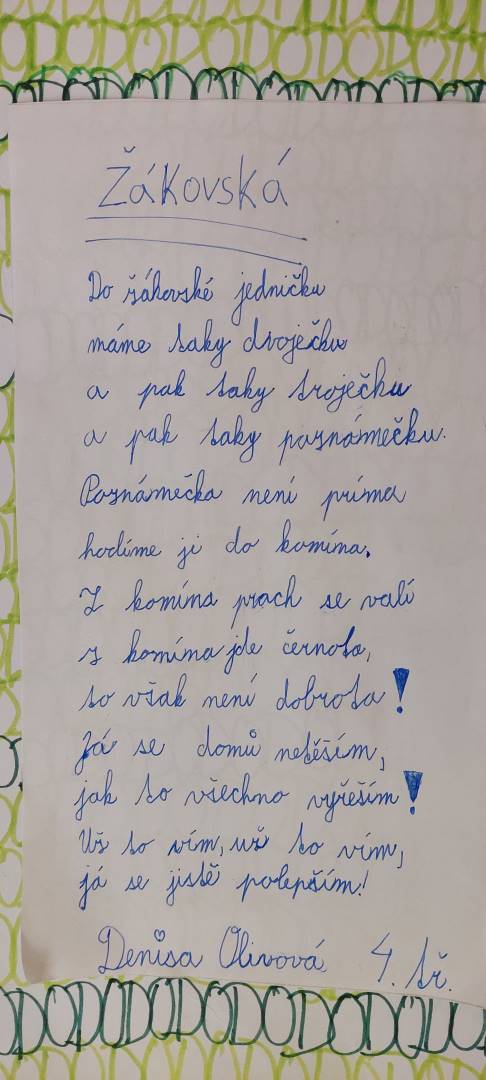 Žákovská
Do žákovské jedničku
máme taky dvoječku
a pak taky troječku
a pak taky poznámečku.
Poznámečka není príma
hodíme ji do komína.
Z komína prach se valí
z komína jde černota,
to však není dobrota!
Já se domů netěším,
jak to všechno vyřeším!
Už to vím, už to vím,
já se jistě polepším!
Denisa Olivová 4. tř.